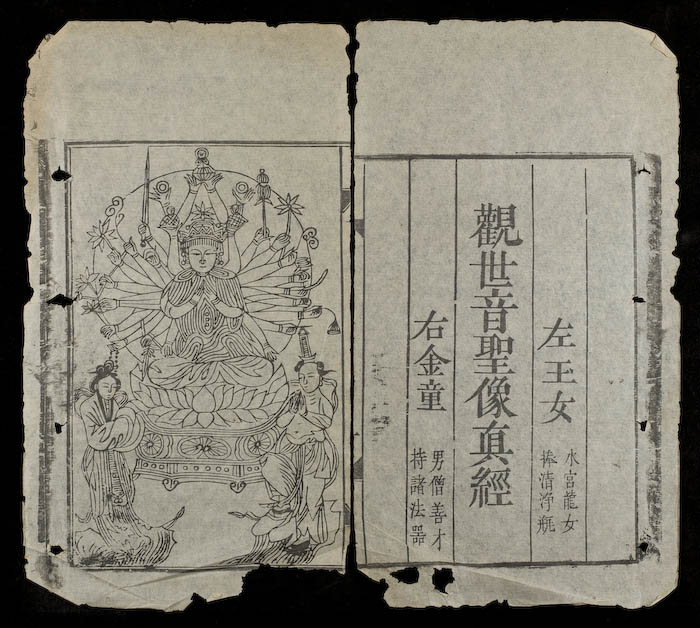 左王女
水宮龍女
捧清净瓶
觀世音聖像真經
右金童
男僧善才
持諸法器